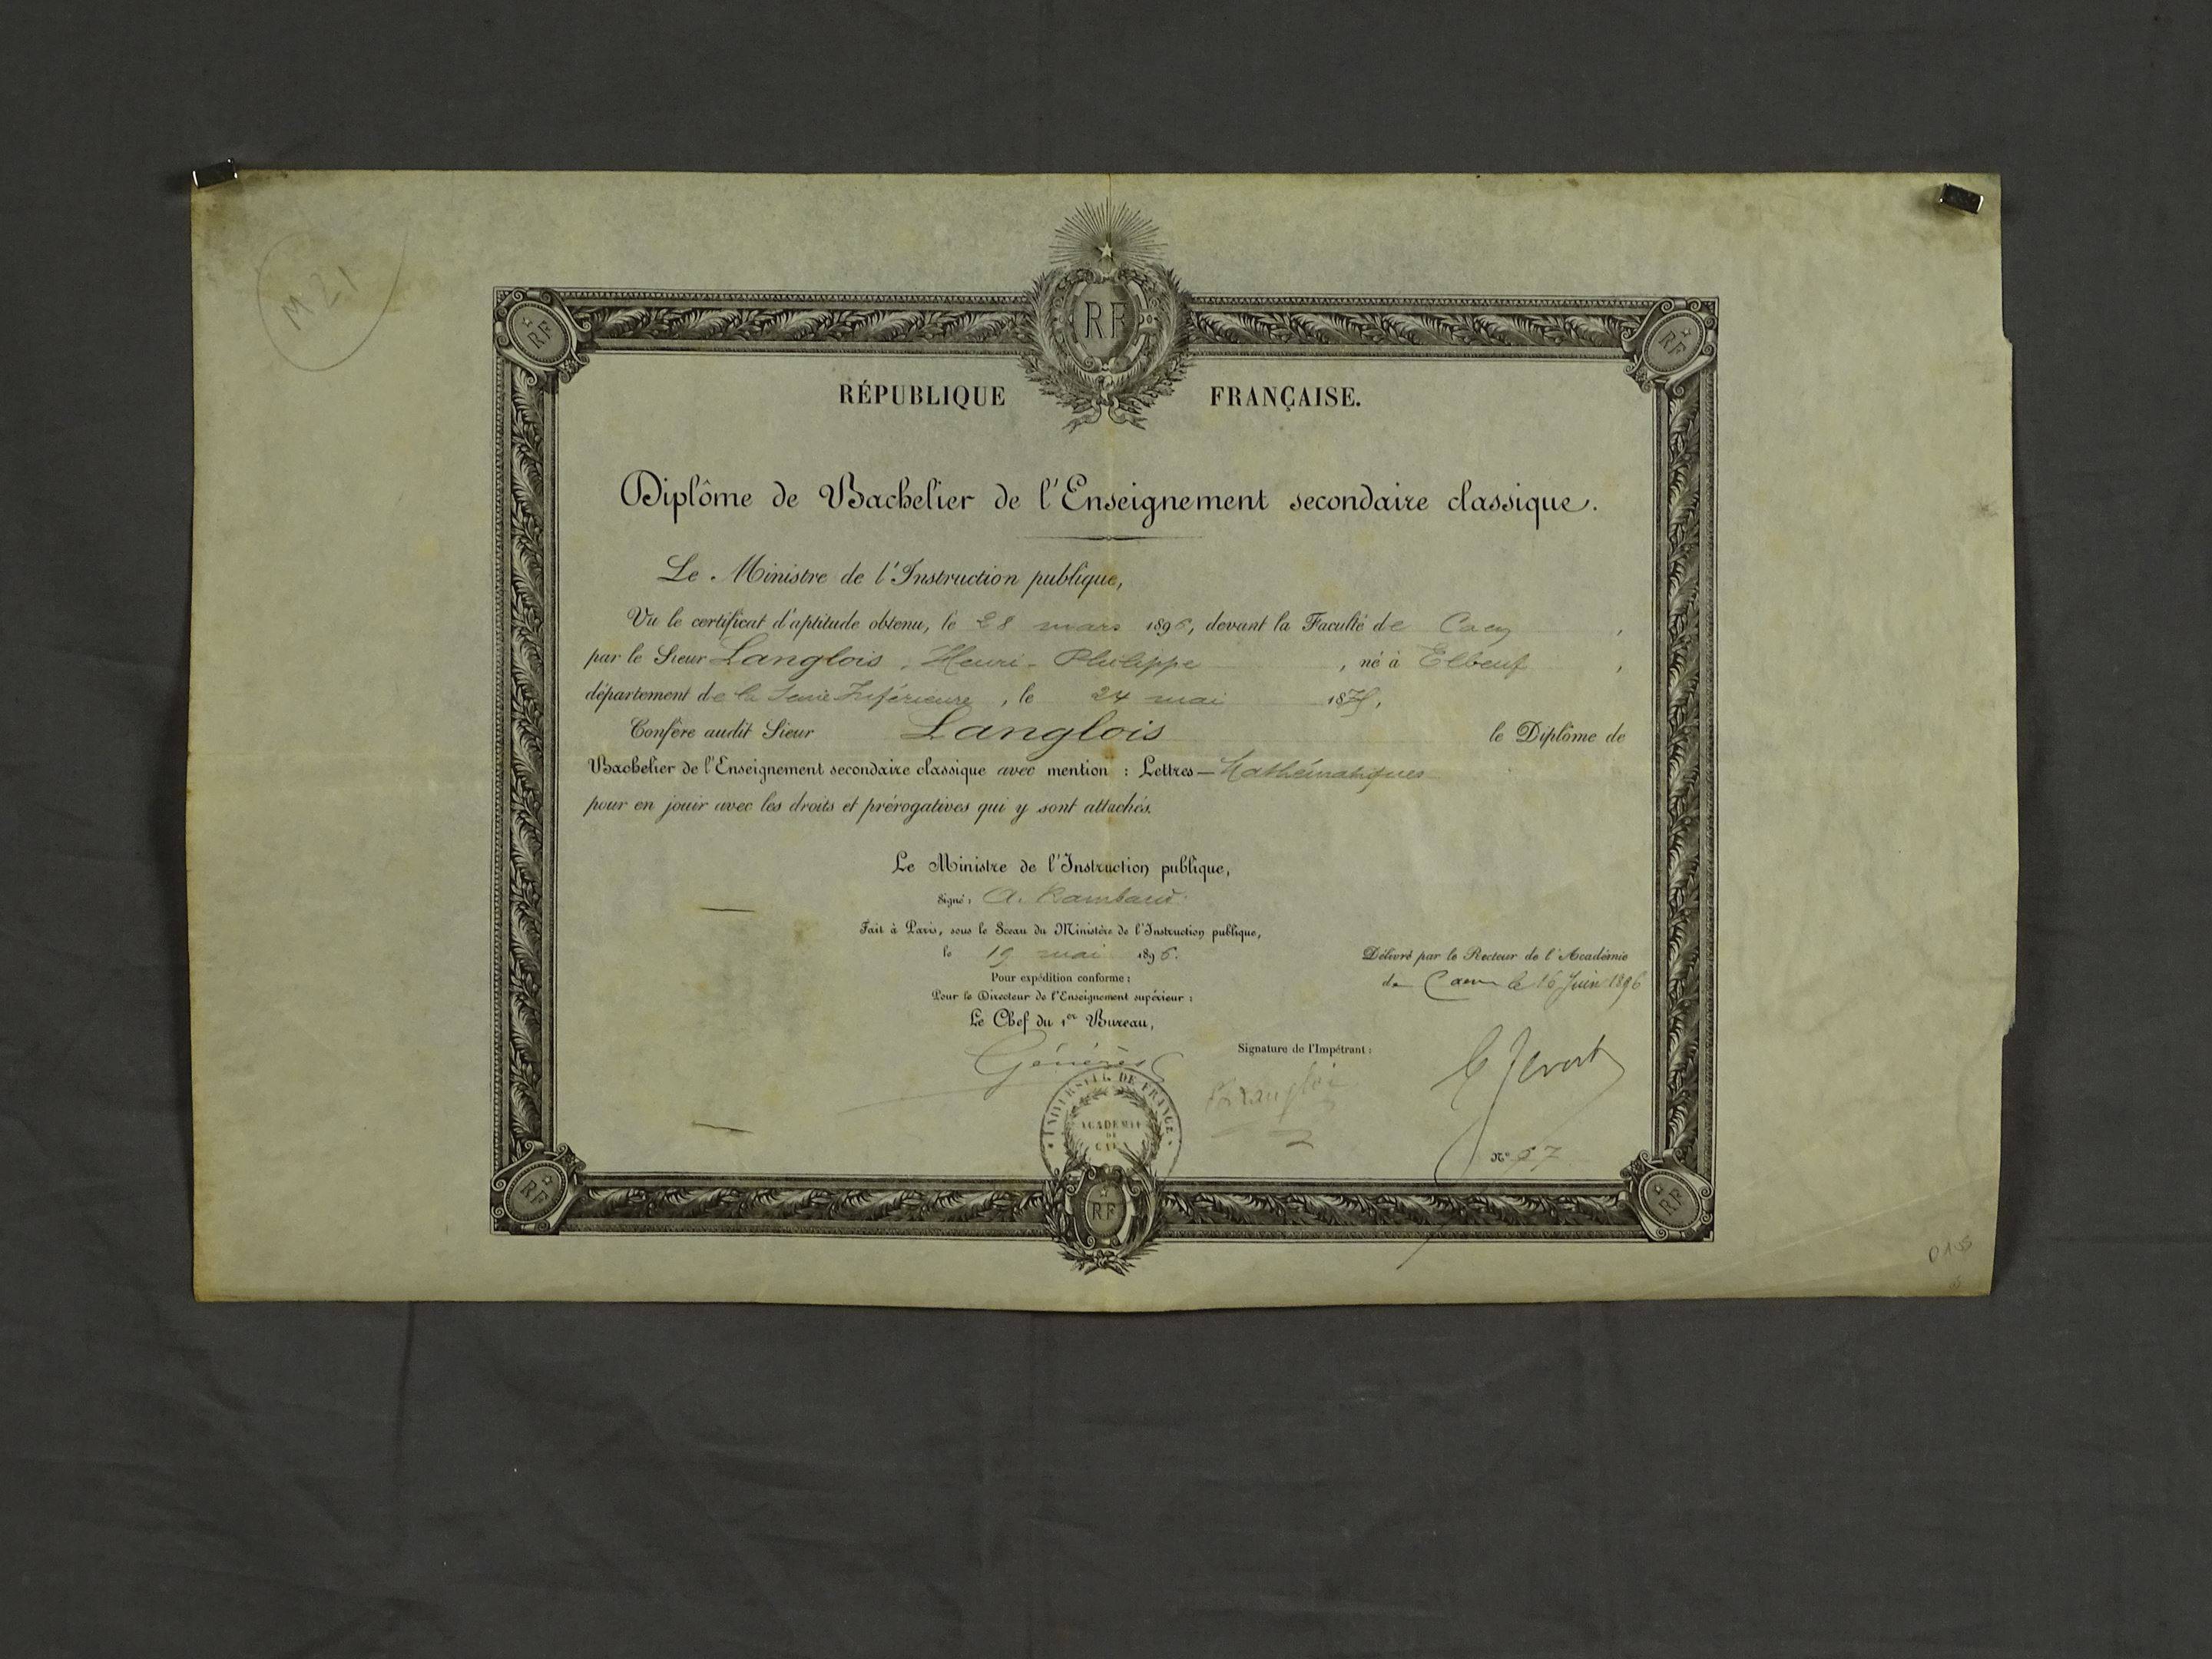 M 21
RF
RF
RF
RÉPUBLIQUE FRANÇAISE.
Diplôme de Bachelier de l'Enseignement secondaire classique.
Le Ministre de l'Instruction publique,
Vu le certificat d'aptitude obtenu, le 28 mars 1896, devant la Faculté de Caen,
par le Sieur Langlois, Henri-Philippe, né à Elbeuf,
département de la Seine Inférieure, le 24 mai 187
Confère audit Sieur Langlois le Diplôme de
Bachelier de l'Enseignement secondaire classique avec mention : Lettres-Mathématiques
pour en jouir avec les droits et prérogatives qui y sont attachés.
Le Ministre de l'Instruction publique,
Signé : A. Rambaud
Fait à Paris, sous le Sceau du Ministère de l'Instruction publique,
le 19 mai 1896.
Pour expédition conforme :
Pour le Directeur de l'Enseignement supérieur :
Le Chef du 1er Bureau,
Délivré par le Recteur de l'Académie
de Caen le 16 Juin 1896
Signature de l'Impétrant :
UNIVERSITÉ DE FRANCE
ACADEMIE
DE
CAEN
N° 67
RF
RF
RF